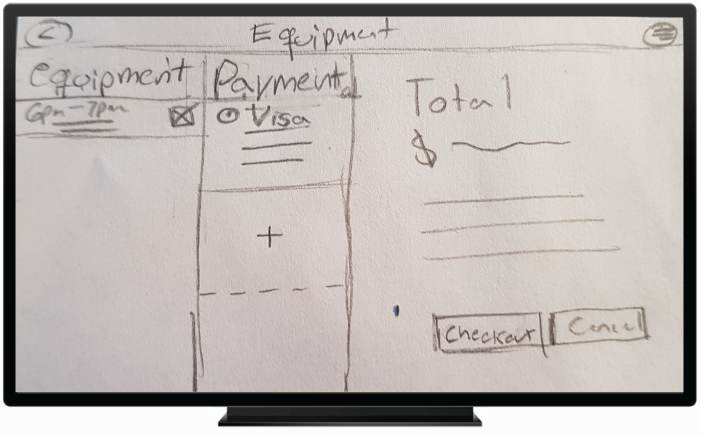 <
Equipment
equipment
6pm-7pm
Payment
Visa
+
Total
$
Checkout
Cancel